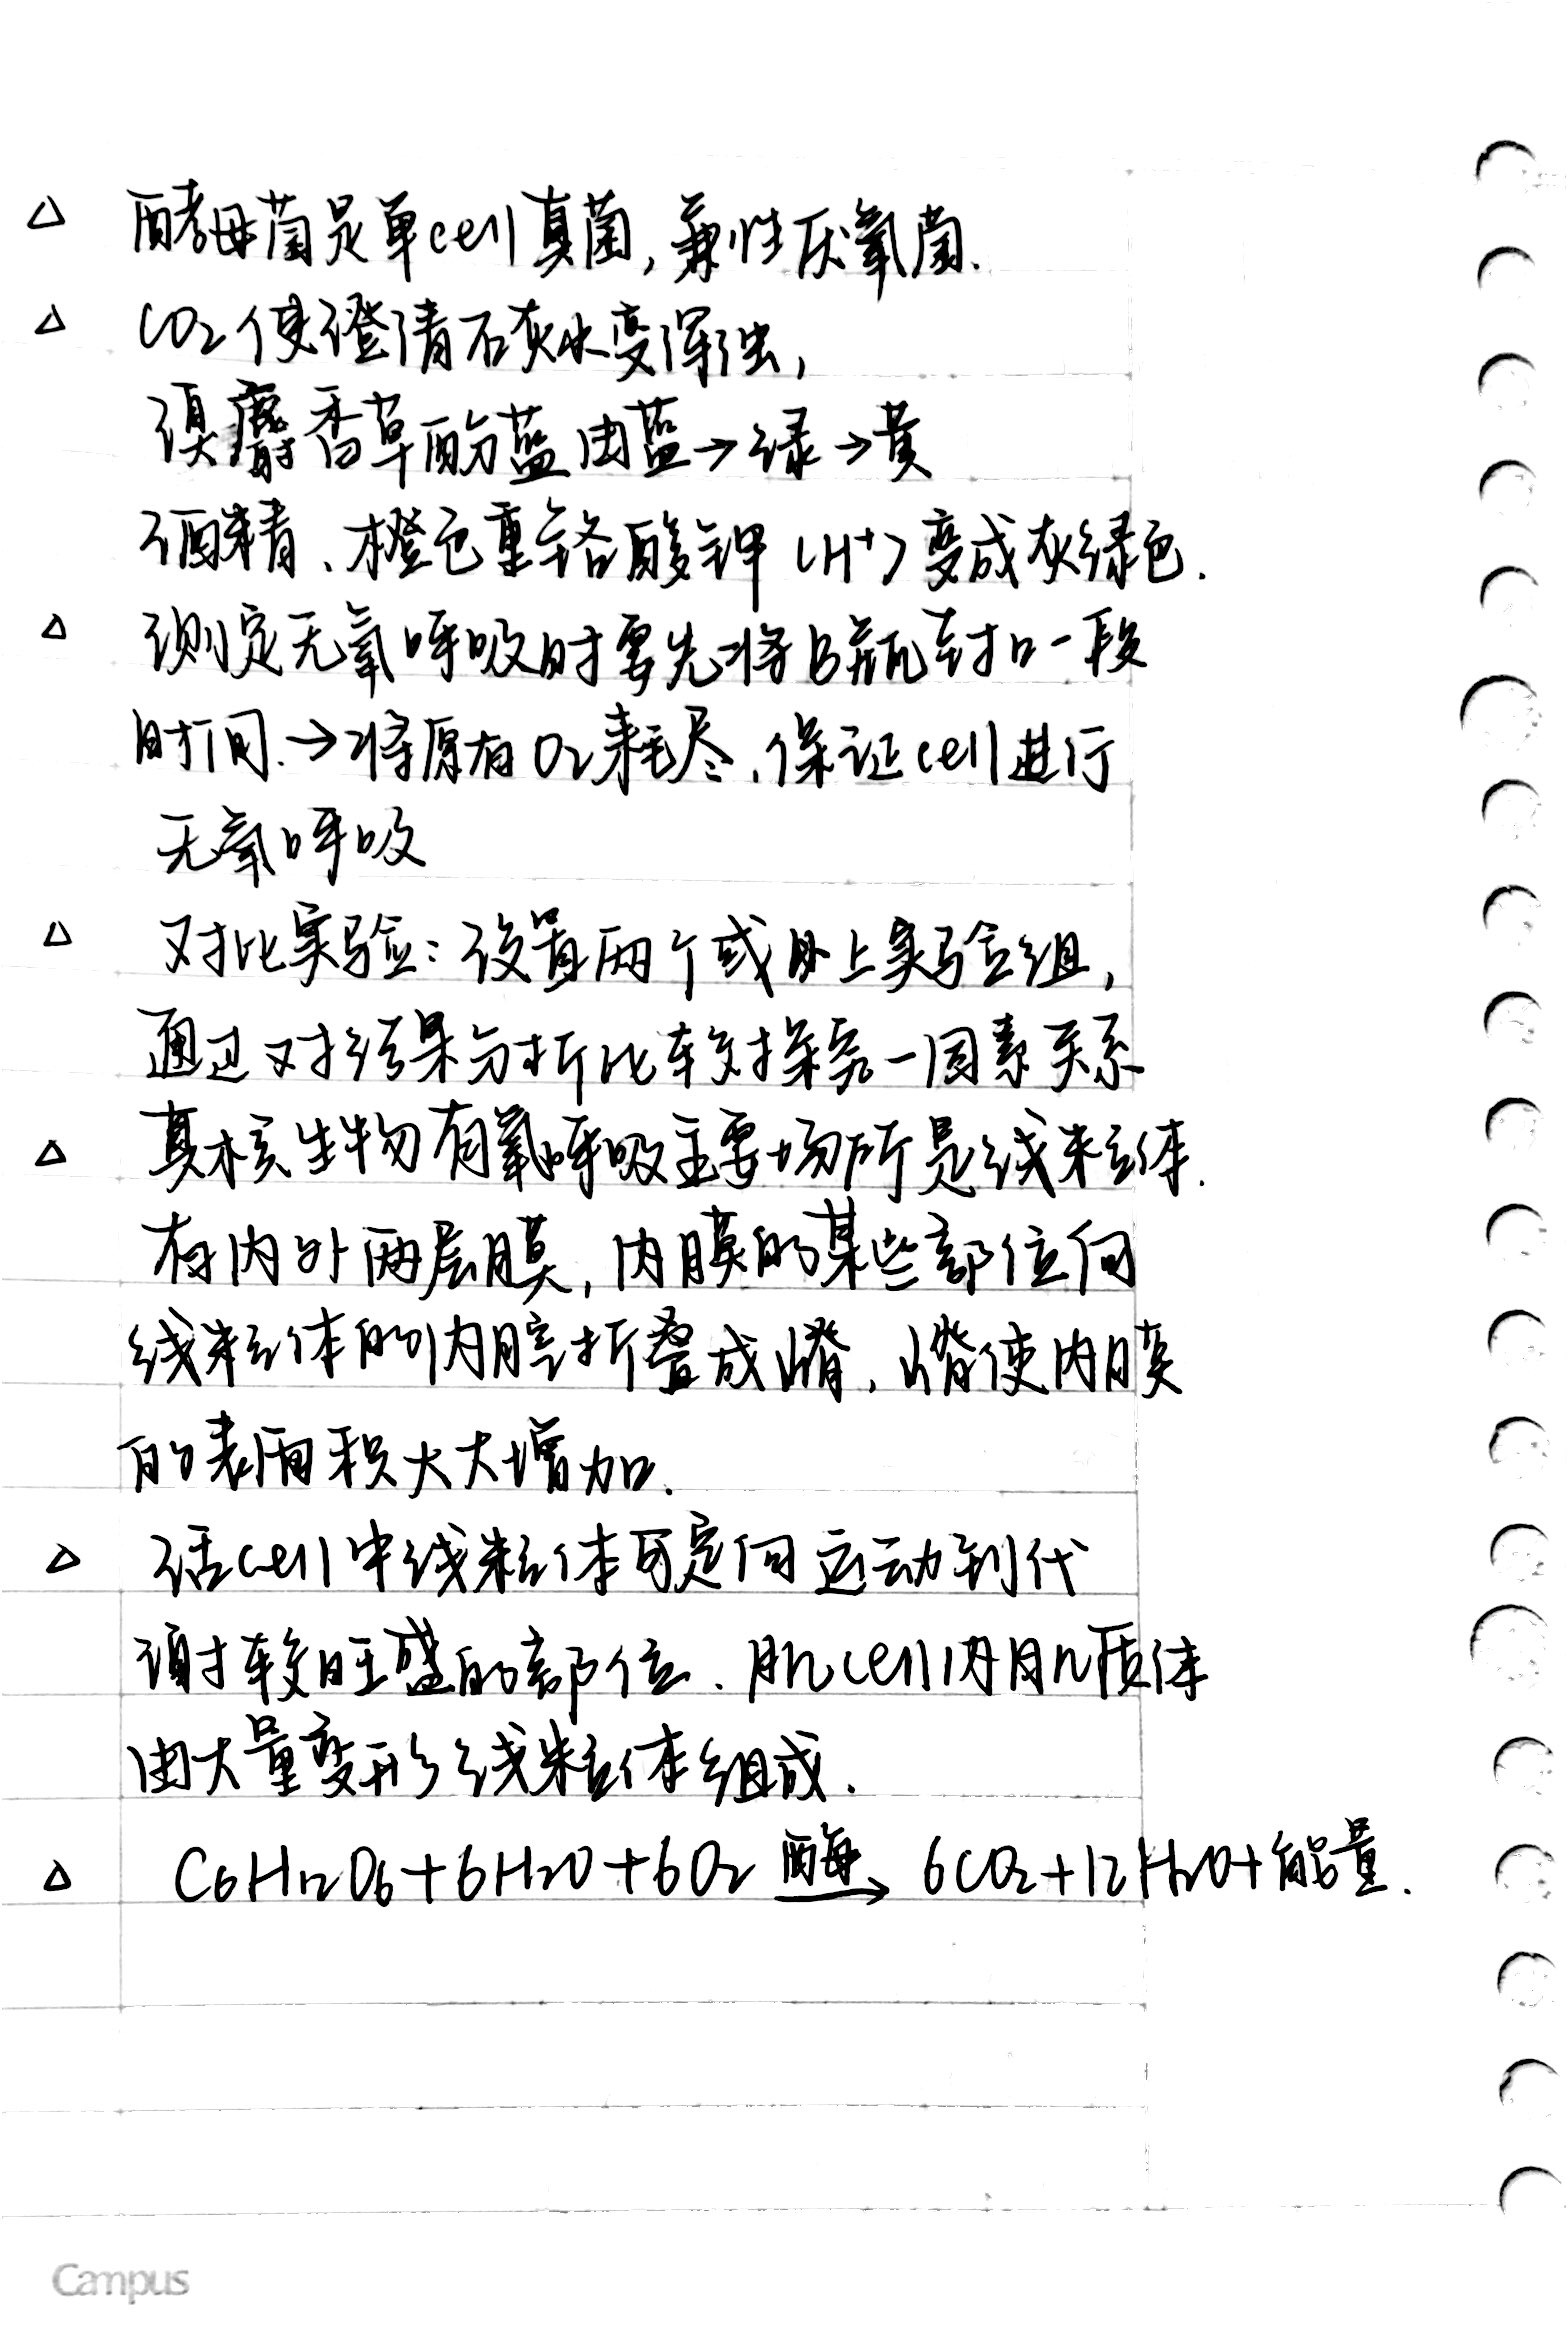 △ 酵母菌是单cell真菌,兼性厌氧菌.
△ CO₂使澄清石灰水变浑浊,
溴麝香草酚蓝由蓝→绿→黄
酒精、橙色重铬酸钾(H⁺)变成灰绿色.
△ 测定无氧呼吸时要先将B瓶封口一段
时间.→将原有O₂耗尽,保证cell进行
无氧呼吸
△ 对比实验:设置两个或以上实验组,
通过对结果分析比较探究一因素关系
△ 真核生物有氧呼吸主要场所是线粒体.
有内外两层膜,内膜的某些部位向
线粒体的内腔折叠成嵴,嵴使内膜
的表面积大大增加.
△ 活cell中线粒体可定向运动到代
谢较旺盛的部位.肌cell内肌质体
由大量变形线粒体组成.
△ C₆H₁₂O₆+6H₂O+6O₂ 酶→ 6CO₂+12H₂O+能量.
Campus